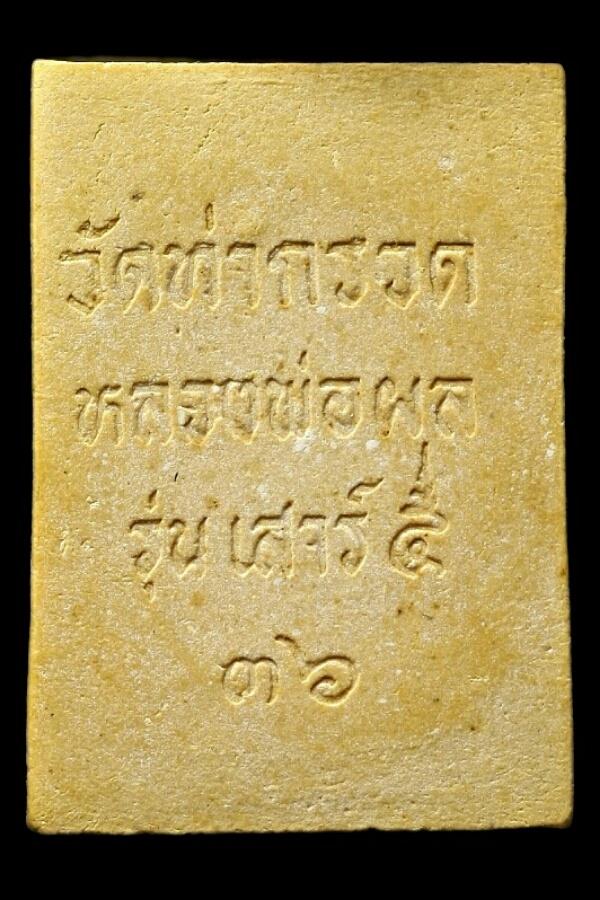 วัดท่ากรวด
หลวงพ่อผล
รุ่น เสาร์ ๕
๓๖